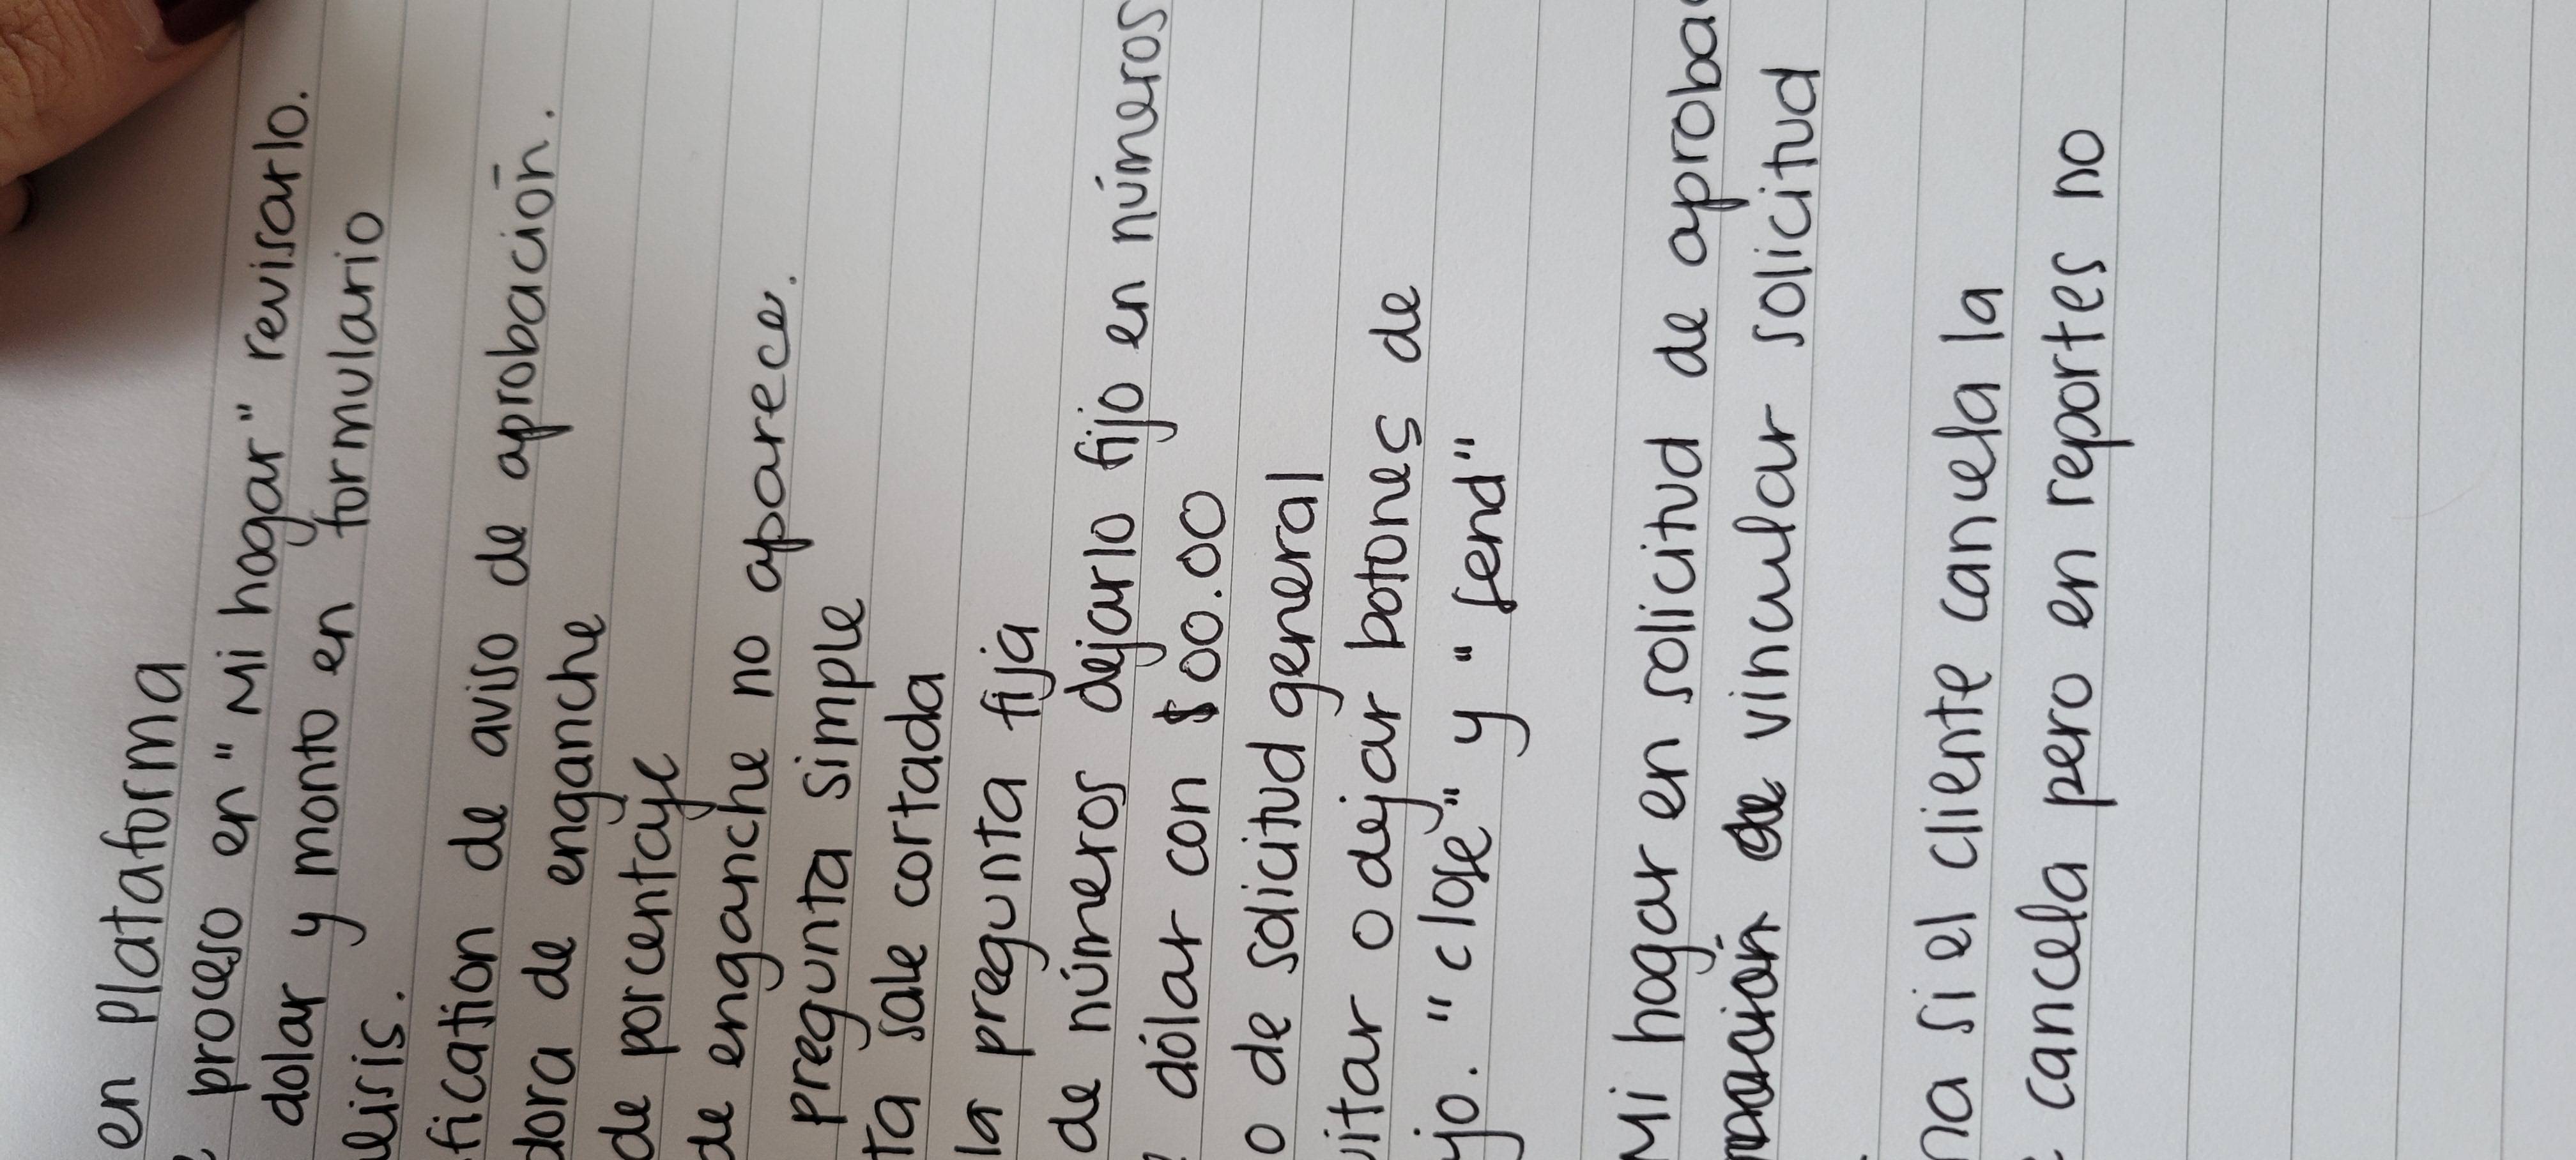 en Plataforma
proceso en "Mi hogar" revisarlo.
dolar y monto en formulario
lisis.
fication de aviso de aprobación.
dora de enganche
de porcentaje
de enganche no aparece.
pregunta simple
ta sale cortada
la pregunta fija
de números dejarlo fijo en números
dólar con $00.00
o de solicitud general
uitar o dejar botones de
jo. "close" y "send"
Mi hogar en solicitud de aproba
vincular solicitud
na si el cliente cancela la
cancela pero en reportes no